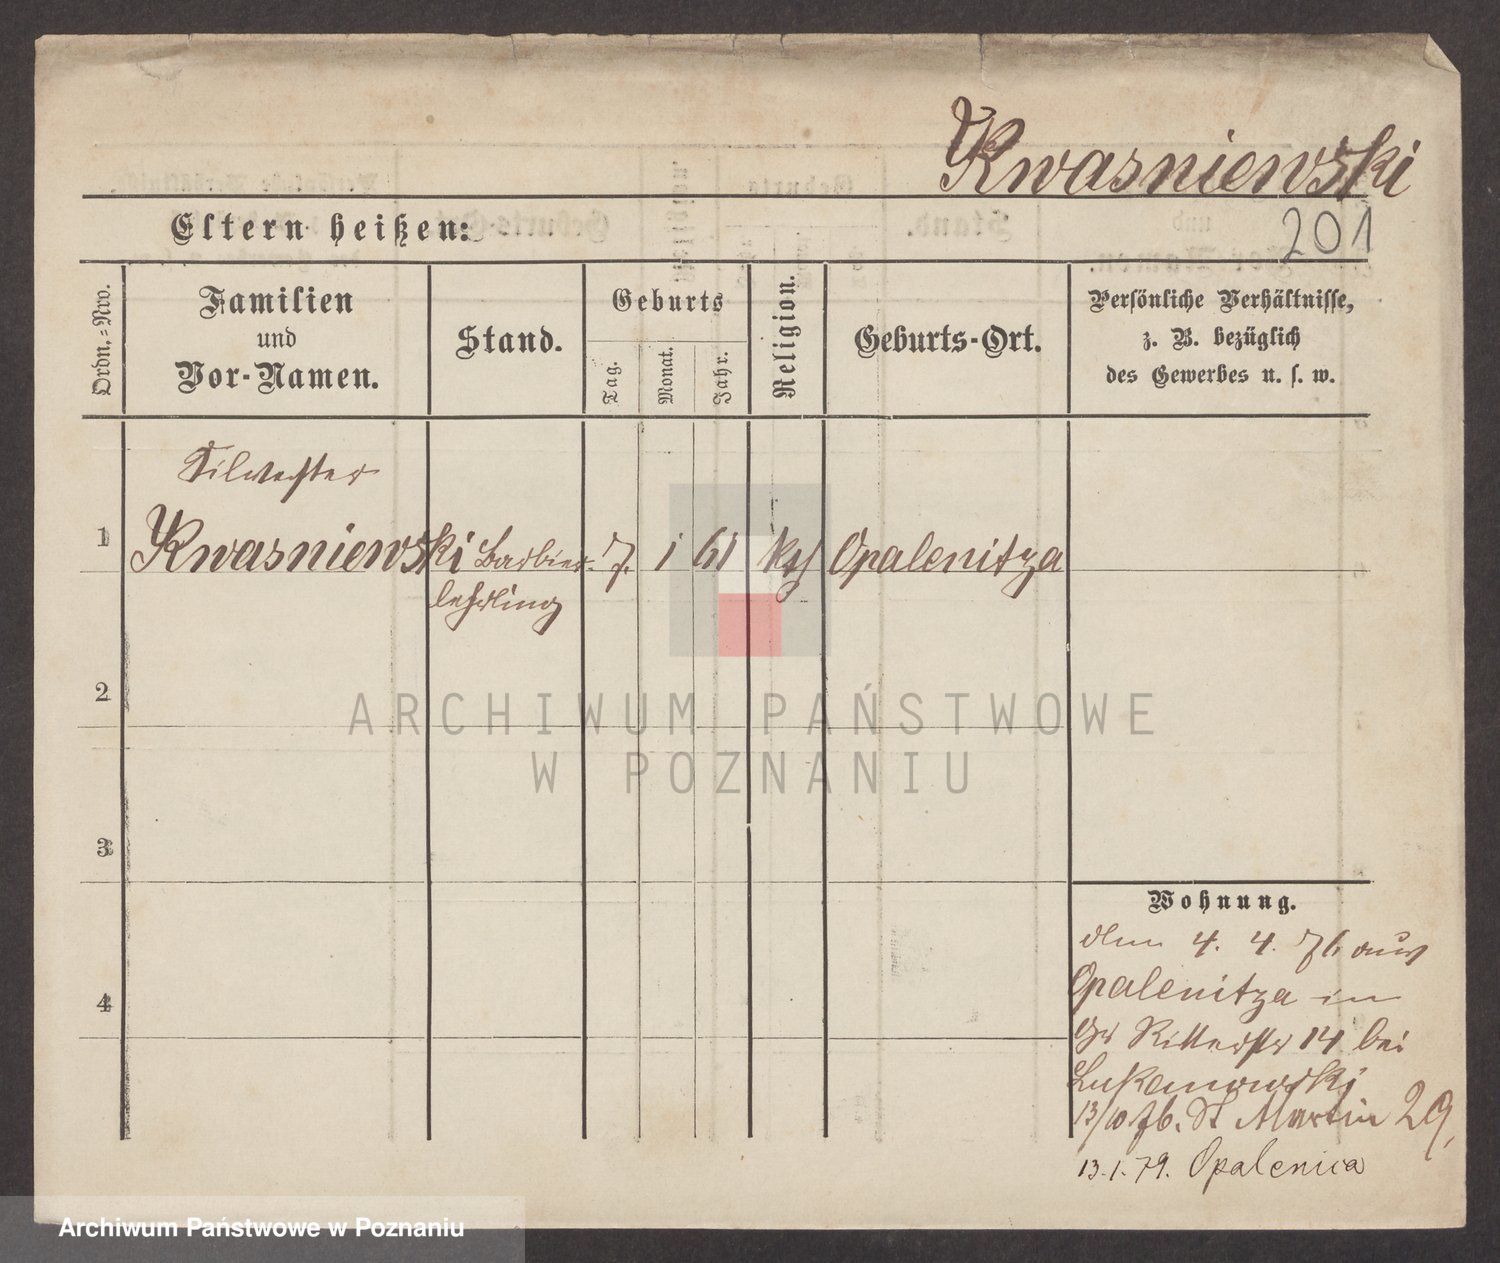 Kwasniewski
201
Eltern heißen:
Ordn.-Nro.
Familien
und
Vor-Namen.
Stand.
Geburts
Tag.
Monat.
Jahr.
Religion.
Geburts-Ort.
Persönliche Verhältnisse,
z. B. bezüglich
des Gewerbes u. s. w.
Silvester
1 Kwasniewski Barbier- 7. 1 61 kth Opalenitza
lehrling
2
ARCHIWUM PAŃSTWOWE
W POZNANIU
3
Wohnung.
4. 4. 76 aus
4
Opalenitza in
Gr Ritterstr 14 bei
13/10 76. St Martin 29,
13.1.79. Opalenica
Archiwum Państwowe w Poznaniu